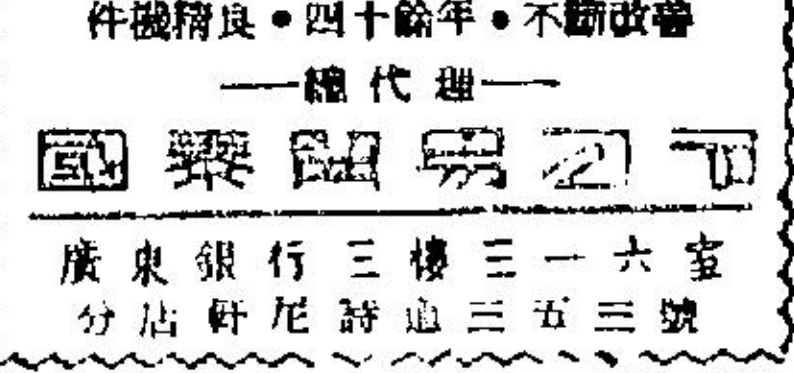 件機精良•四十餘年•不斷改善
—總代理—
國貿易公司
廣東銀行三樓三一六室
分店軒尼詩道三五三號